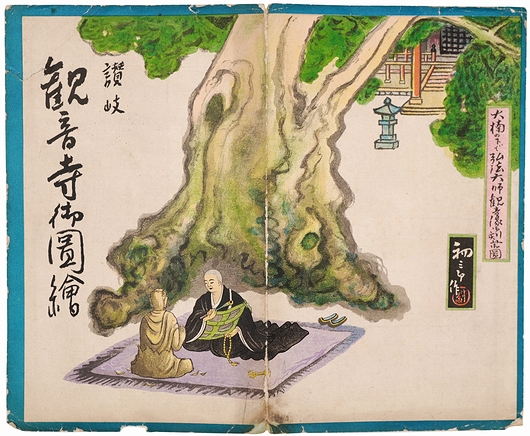 大楠の下で弘法大師観音像圖
初三郎作
讃岐
観音寺御圖繪